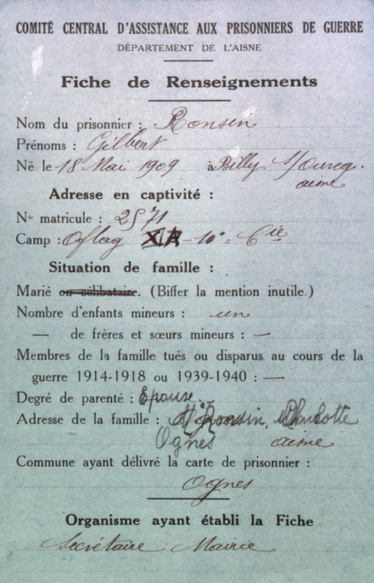 COMITÉ CENTRAL D'ASSISTANCE AUX PRISONNIERS DE GUERRE
DÉPARTEMENT DE L'AISNE
Fiche de Renseignements
Nom du prisonnier : Ronsin
Prénoms : Gilbert
Né le 18 Mai 1909 à Billy s/Ourcq.
aisne
Adresse en captivité :
No matricule : 2571
Camp : Oflag - 10e Cie
Situation de famille :
Marié ou célibataire. (Biffer la mention inutile.)
Nombre d'enfants mineurs : un
— de frères et sœurs mineurs : —
Membres de la famille tués ou disparus au cours de la
guerre 1914-1918 ou 1939-1940 : —
Degré de parenté : Epouse
Adresse de la famille : Ronsin,
Ognes aisne
Commune ayant délivré la carte de prisonnier :
Ognes
Organisme ayant établi la Fiche
Secrétaire Mairie